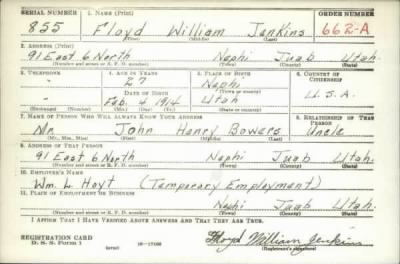 SERIAL NUMBER 1. NAME (Print) ORDER NUMBER
855 Floyd William Jenkins 662-A
(First) (Middle) (Last)
2. ADDRESS (Print)
91 East 6 North Nephi Juab Utah.
(Number and street or R. F. D. number) (Town) (County) (State)
3. TELEPHONE 4. AGE IN YEARS 5. PLACE OF BIRTH 6. COUNTRY OF CITIZENSHIP
27 Nephi
DATE OF BIRTH (Town or county)
Feb. 4, 1914 Utah U.S.A.
(Exchange) (Number) (Mo.) (Day) (Yr.) (State or country)
7. NAME OF PERSON WHO WILL ALWAYS KNOW YOUR ADDRESS 8. RELATIONSHIP OF THAT PERSON
Mr. John Henry Bowers Uncle
(Mr., Mrs., Miss) (First) (Middle) (Last)
9. ADDRESS OF THAT PERSON
91 East 6 North Nephi Juab Utah.
(Number and street or R. F. D. number) (Town) (County) (State)
10. EMPLOYER'S NAME
Wm. L Hoyt (Temporary Employment)
11. PLACE OF EMPLOYMENT OR BUSINESS
Nephi Juab Utah.
(Number and street or R. F. D. number) (Town) (County) (State)
I AFFIRM THAT I HAVE VERIFIED ABOVE ANSWERS AND THAT THEY ARE TRUE.
REGISTRATION CARD
D. S. S. Form 1 (over) 16-17105 Floyd William Jenkins
(Registrant's signature)